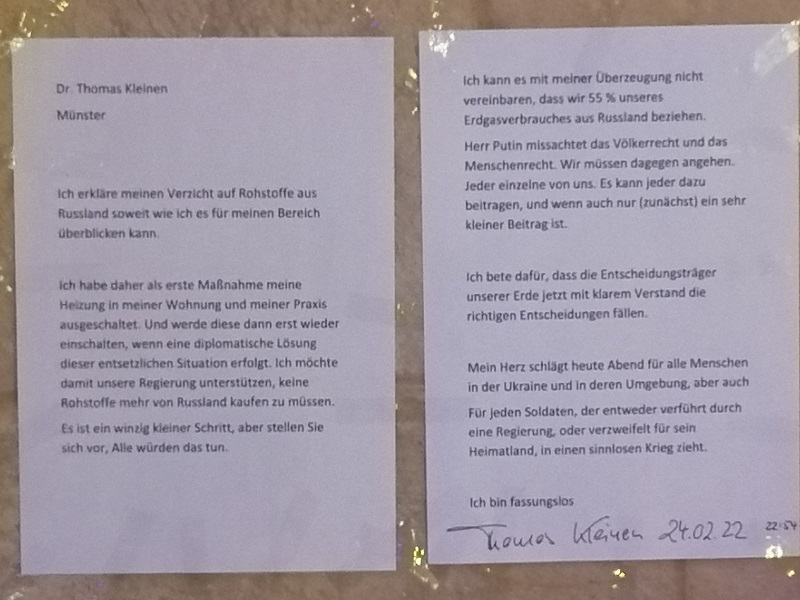 Dr. Thomas Kleinen
Münster
Ich erkläre meinen Verzicht auf Rohstoffe aus
Russland soweit wie ich es für meinen Bereich
überblicken kann.
Ich habe daher als erste Maßnahme meine
Heizung in meiner Wohnung und meiner Praxis
ausgeschaltet. Und werde diese dann erst wieder
einschalten, wenn eine diplomatische Lösung
dieser entsetzlichen Situation erfolgt. Ich möchte
damit unsere Regierung unterstützen, keine
Rohstoffe mehr von Russland kaufen zu müssen.
Es ist ein winzig kleiner Schritt, aber stellen Sie
sich vor, Alle würden das tun.
Ich kann es mit meiner Überzeugung nicht
vereinbaren, dass wir 55 % unseres
Erdgasverbrauches aus Russland beziehen.
Herr Putin missachtet das Völkerrecht und das
Menschenrecht. Wir müssen dagegen angehen.
Jeder einzelne von uns. Es kann jeder dazu
beitragen, und wenn auch nur (zunächst) ein sehr
kleiner Beitrag ist.
Ich bete dafür, dass die Entscheidungsträger
unserer Erde jetzt mit klarem Verstand die
richtigen Entscheidungen fällen.
Mein Herz schlägt heute Abend für alle Menschen
in der Ukraine und in deren Umgebung, aber auch
Für jeden Soldaten, der entweder verführt durch
eine Regierung, oder verzweifelt für sein
Heimatland, in einen sinnlosen Krieg zieht.
Ich bin fassungslos
Thomas Kleinen 24.02.22 22:54